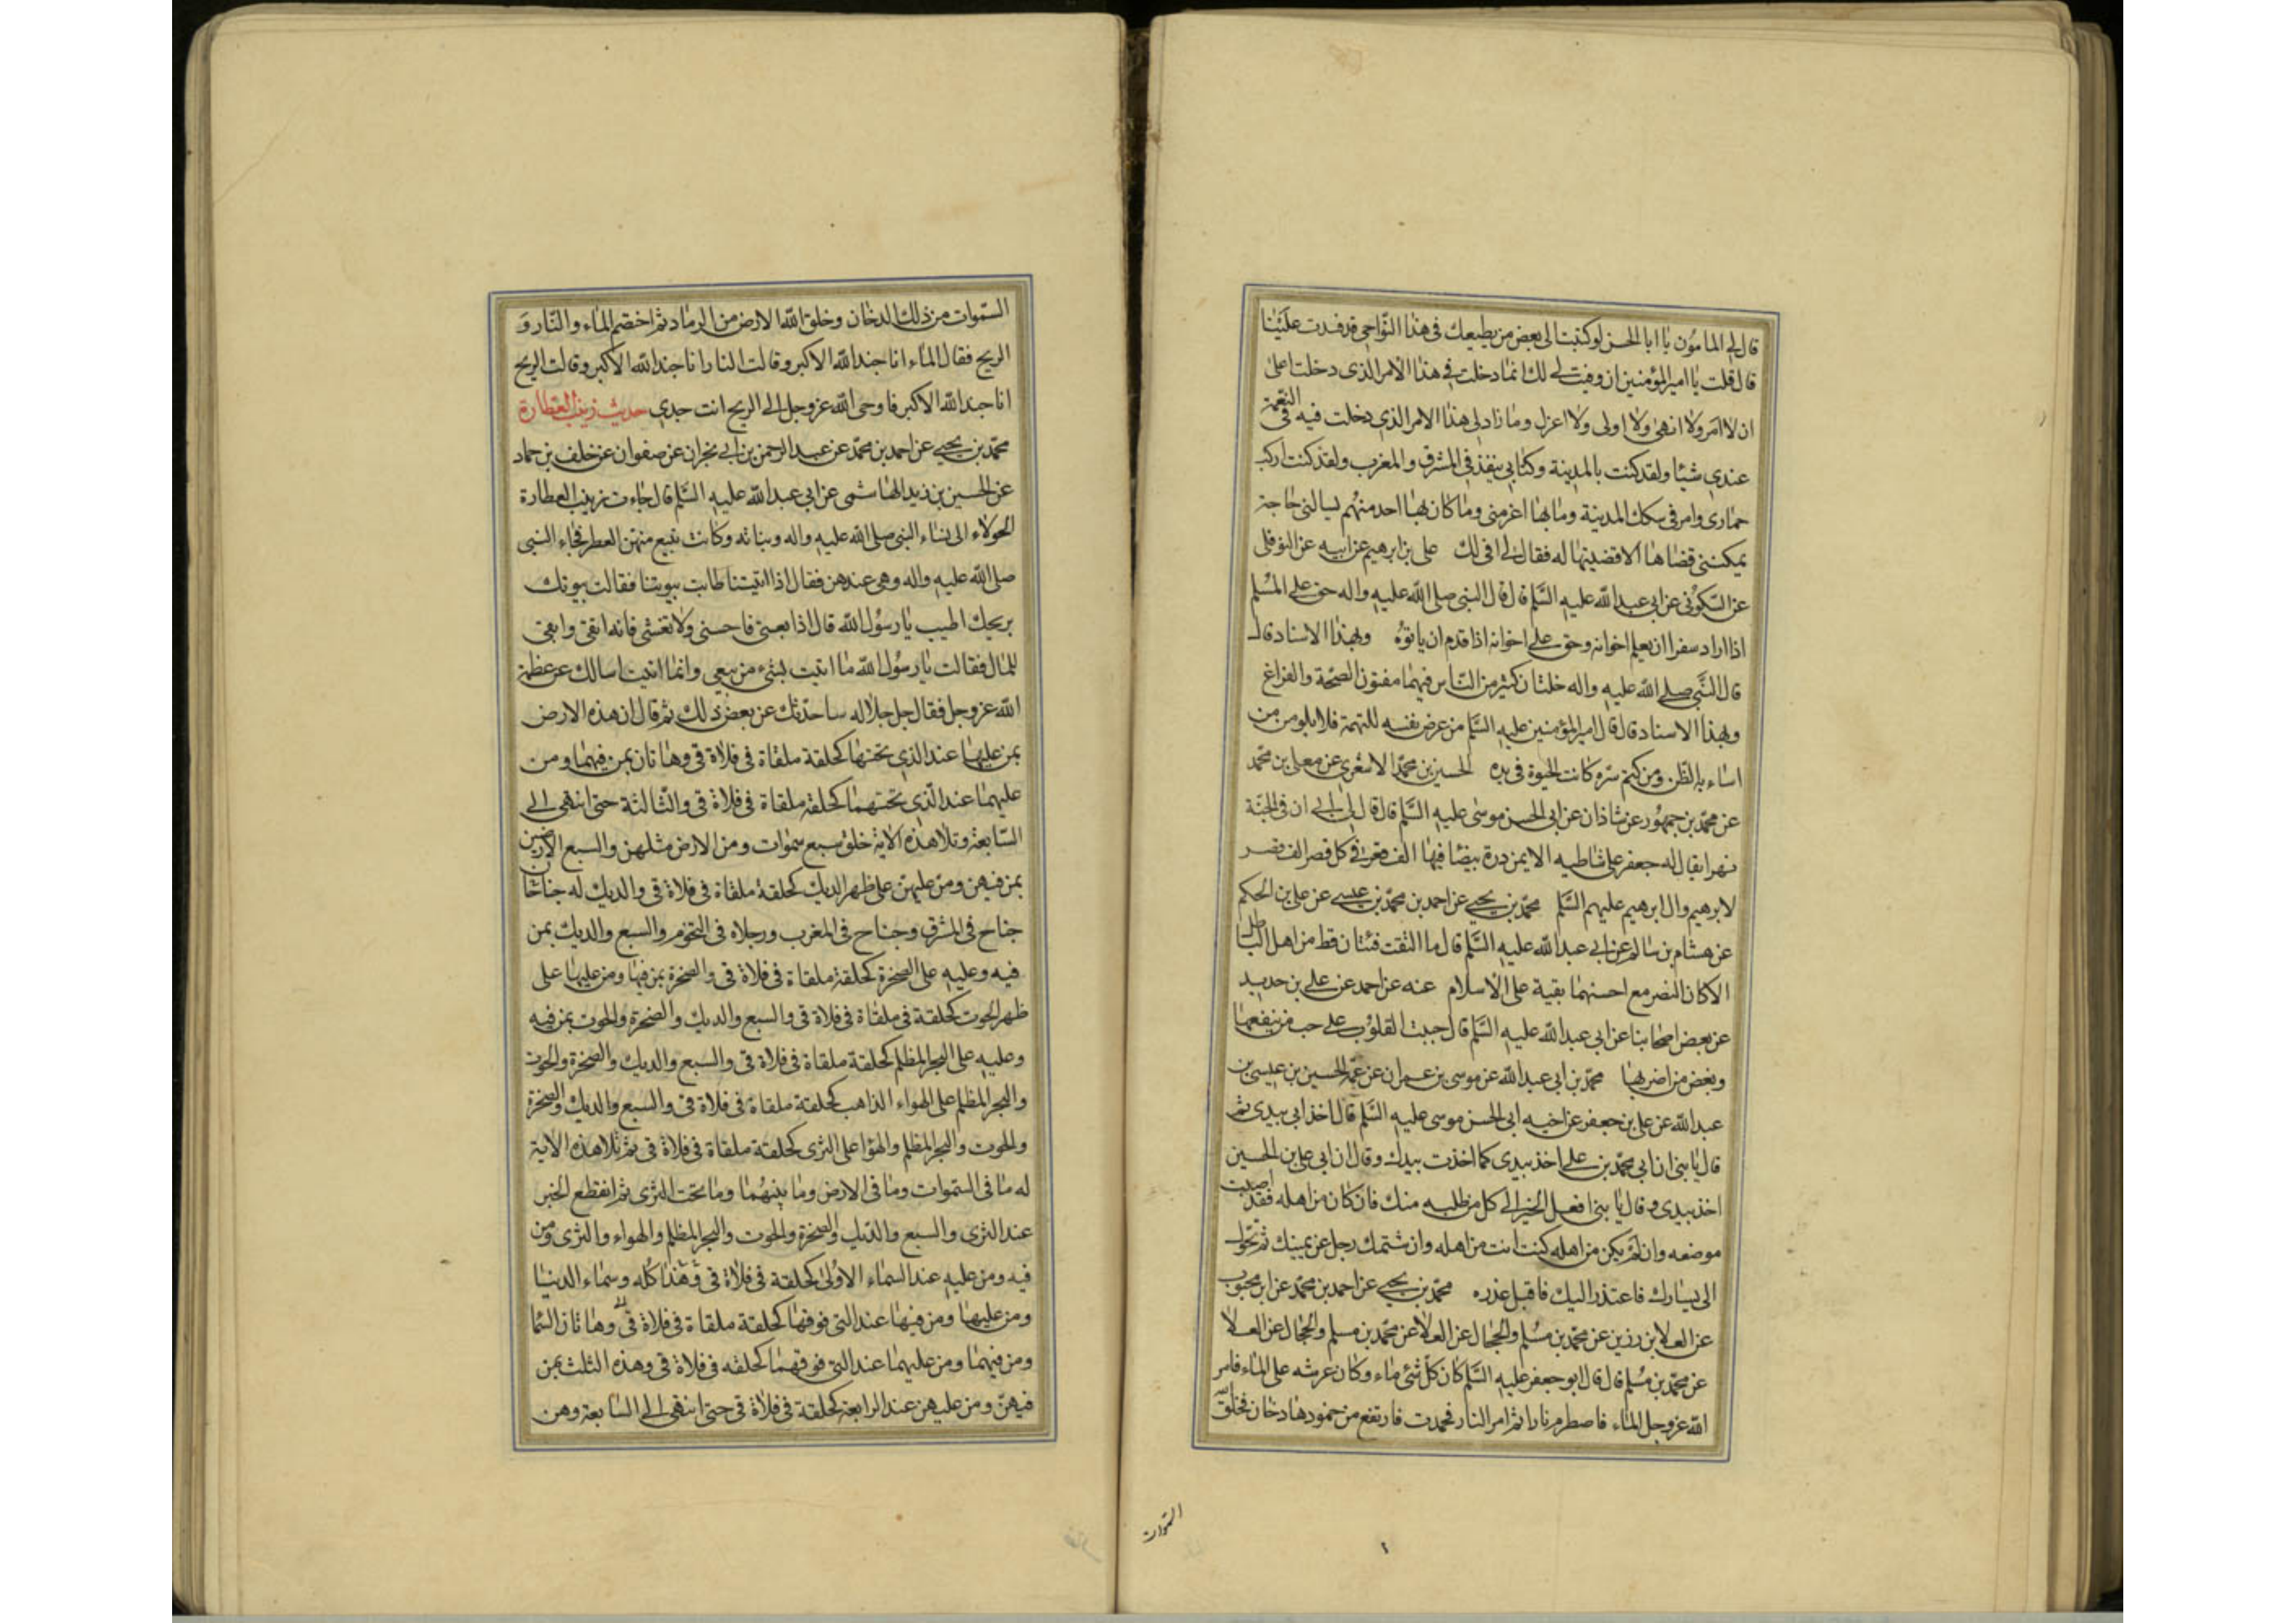 قال لي المامون يا ابا الحسن لو كتبت الى بعض من يطيعك في هذا النواحي قد فدت علينا
قال قلت يا امير المؤمنين ان وفيت لي لك انما دخلت في هذا الامر الذي دخلت على
ان لا آمر ولا انهى ولا اولى ولا اعزل وما زادلي هذا الامر الذي دخلت فيه في النعمة
عندي شيئا ولقد كنت بالمدينة وكتابي ينفذ في المشرق والمغرب ولقد كنت اركب
حماري وامر في سكك المدينة وما بها اعز مني وما كان بها احد منهم يسالني حاجة
يمكنني قضاها الا قضيتها له فقال لي افي لك علي بن ابرهيم عن ابيه عن النوفلي
عن السكوني عن ابي عبد الله عليه السلم قال قال النبي صلى الله عليه واله حق على المسلم
اذا اراد سفرا ان يعلم اخوانه وحق على اخوانه اذا قدم ان ياتوه وبهذا الاسناد قال
قال النبي صلى الله عليه واله خلتان كثير من الناس فيهما مفتون الصحة والفراغ
وبهذا الاسناد قال قال امير المؤمنين عليه السلم من عرض نفسه للتهمة فلا يلومن من
اساء به الظن ومن كتم سره كانت الخيرة في يده الحسين بن محمد الاشعري عن معلى بن محمد
عن محمد بن جمهور عن شاذان عن ابي الحسن موسى عليه السلم قال قال لي ابي ان في الجنة
نهرا يقال له جعفر على شاطيه الايمن درة بيضا فيها الف قصر في كل قصر الف قصر
لابرهيم وال ابرهيم عليهم السلم محمد بن يحيى عن احمد بن محمد بن عيسى عن علي بن الحكم
عن هشام بن سالم عن ابي عبد الله عليه السلم قال ما التقت فئتان قط من اهل الباطل
الا كان النصر مع احسنهما بقية على الاسلام عنه عن احمد عن علي بن حديد
عن بعض اصحابنا عن ابي عبد الله عليه السلم قال جبلت القلوب على حب من ينفعها
وبغض من اضر بها محمد بن ابي عبد الله عن موسى بن عمران عن عمه الحسين بن عيسى بن
عبد الله عن علي بن جعفر عن اخيه ابي الحسن موسى عليه السلم قال اخذ ابي بيدي ثم
قال يا بني ان ابي محمد بن علي اخذ بيدي كما اخذت بيدك وقال ان ابي علي بن الحسين
اخذ بيدي وقال يا بني افعل الخير الى كل من طلبه منك فان كان من اهله فقد اصبت
موضعه وان لم يكن من اهله كنت انت من اهله وان شتمك رجل عن يمينك ثم تحول
الى يسارك فاعتذر اليك فاقبل عذره محمد بن يحيى عن احمد بن محمد عن ابن محبوب
عن العلا بن رزين عن محمد بن مسلم والحجال عن العلا عن محمد بن مسلم والحجال عن العلا
عن محمد بن مسلم قال قال ابو جعفر عليه السلم كان كل شئ ماء وكان عرشه على الماء فامر
الله عز وجل الماء فاضطرم نارا ثم امر النار فخمدت فارتفع من خمودها دخان فخلق الله
السموات
السموات من ذلك الدخان وخلق الله الارض من الرماد ثم اختصم الماء والنار و
الريح فقال الماء انا جند الله الاكبر وقالت النار انا جند الله الاكبر وقالت الريح
انا جند الله الاكبر فاوحى الله عز وجل الى الريح انت جندي حديث زينب العطارة
محمد بن يحيى عن احمد بن محمد عن عبد الرحمن بن ابي نجران عن صفوان عن خلف بن حماد
عن الحسين بن زيد الهاشمي عن ابي عبد الله عليه السلم قال جاءت زينب العطارة
الحولاء الى نساء النبي صلى الله عليه واله وبناته وكانت تبيع منهن العطر فجاء النبي
صلى الله عليه واله وهي عندهن فقال اذا اتيتنا طابت بيوتنا فقالت بيوتك
بريحك اطيب يا رسول الله قال اذا بعت فاحسني ولا تغشي فانه اتقى وابقى
للمال فقالت يا رسول الله ما اتيت بشيء من بيعي وانما اتيت اسالك عن عظمة
الله عز وجل فقال جل جلاله ساحدثك عن بعض ذلك ثم قال ان هذه الارض
بمن عليها عند الذي تحتها كحلقة ملقاة في فلاة قي وهاتان بمن فيهما ومن
عليهما عند الذي تحتهما كحلقة ملقاة في فلاة قي والثالثة حتى انتهى الى
السابعة وتلا هذه الاية خلق سبع سموات ومن الارض مثلهن والسبع الارضين
بمن فيهن ومن عليهن على ظهر الديك كحلقة ملقاة في فلاة قي والديك له جناحان
جناح في المشرق وجناح في المغرب ورجلاه في التخوم والسبع والديك بمن
فيه وعليه على الصخرة كحلقة ملقاة في فلاة قي والصخرة بمن فيها ومن عليها على
ظهر الحوت كحلقة في ملقاة في فلاة قي والسبع والديك والصخرة والحوت بمن فيه
وعليه على البحر المظلم كحلقة ملقاة في فلاة قي والسبع والديك والصخرة والحوت
والبحر المظلم على الهواء الذاهب كحلقة ملقاة في فلاة قي والسبع والديك والصخرة
والحوت والبحر المظلم والهوا على الثرى كحلقة ملقاة في فلاة قي ثم تلا هذه الاية
له ما في السموات وما في الارض وما بينهما وما تحت الثرى ثم انقطع الخبر
عند الثرى والسبع والديك والصخرة والحوت والبحر المظلم والهواء والثرى ومن
فيه ومن عليه عند السماء الاولى كحلقة في فلاة قي وهذا كله وسماء الدنيا
ومن عليها ومن فيها عند التي فوقها كحلقة ملقاة في فلاة قي وهاتان السما
ومن فيهما ومن عليهما عند التي فوقهما كحلقه في فلاة قي وهذه الثلث بمن
فيهن ومن عليهن عند الرابعة كحلقة في فلاة قي حتى انتهى الى السابعة وهن